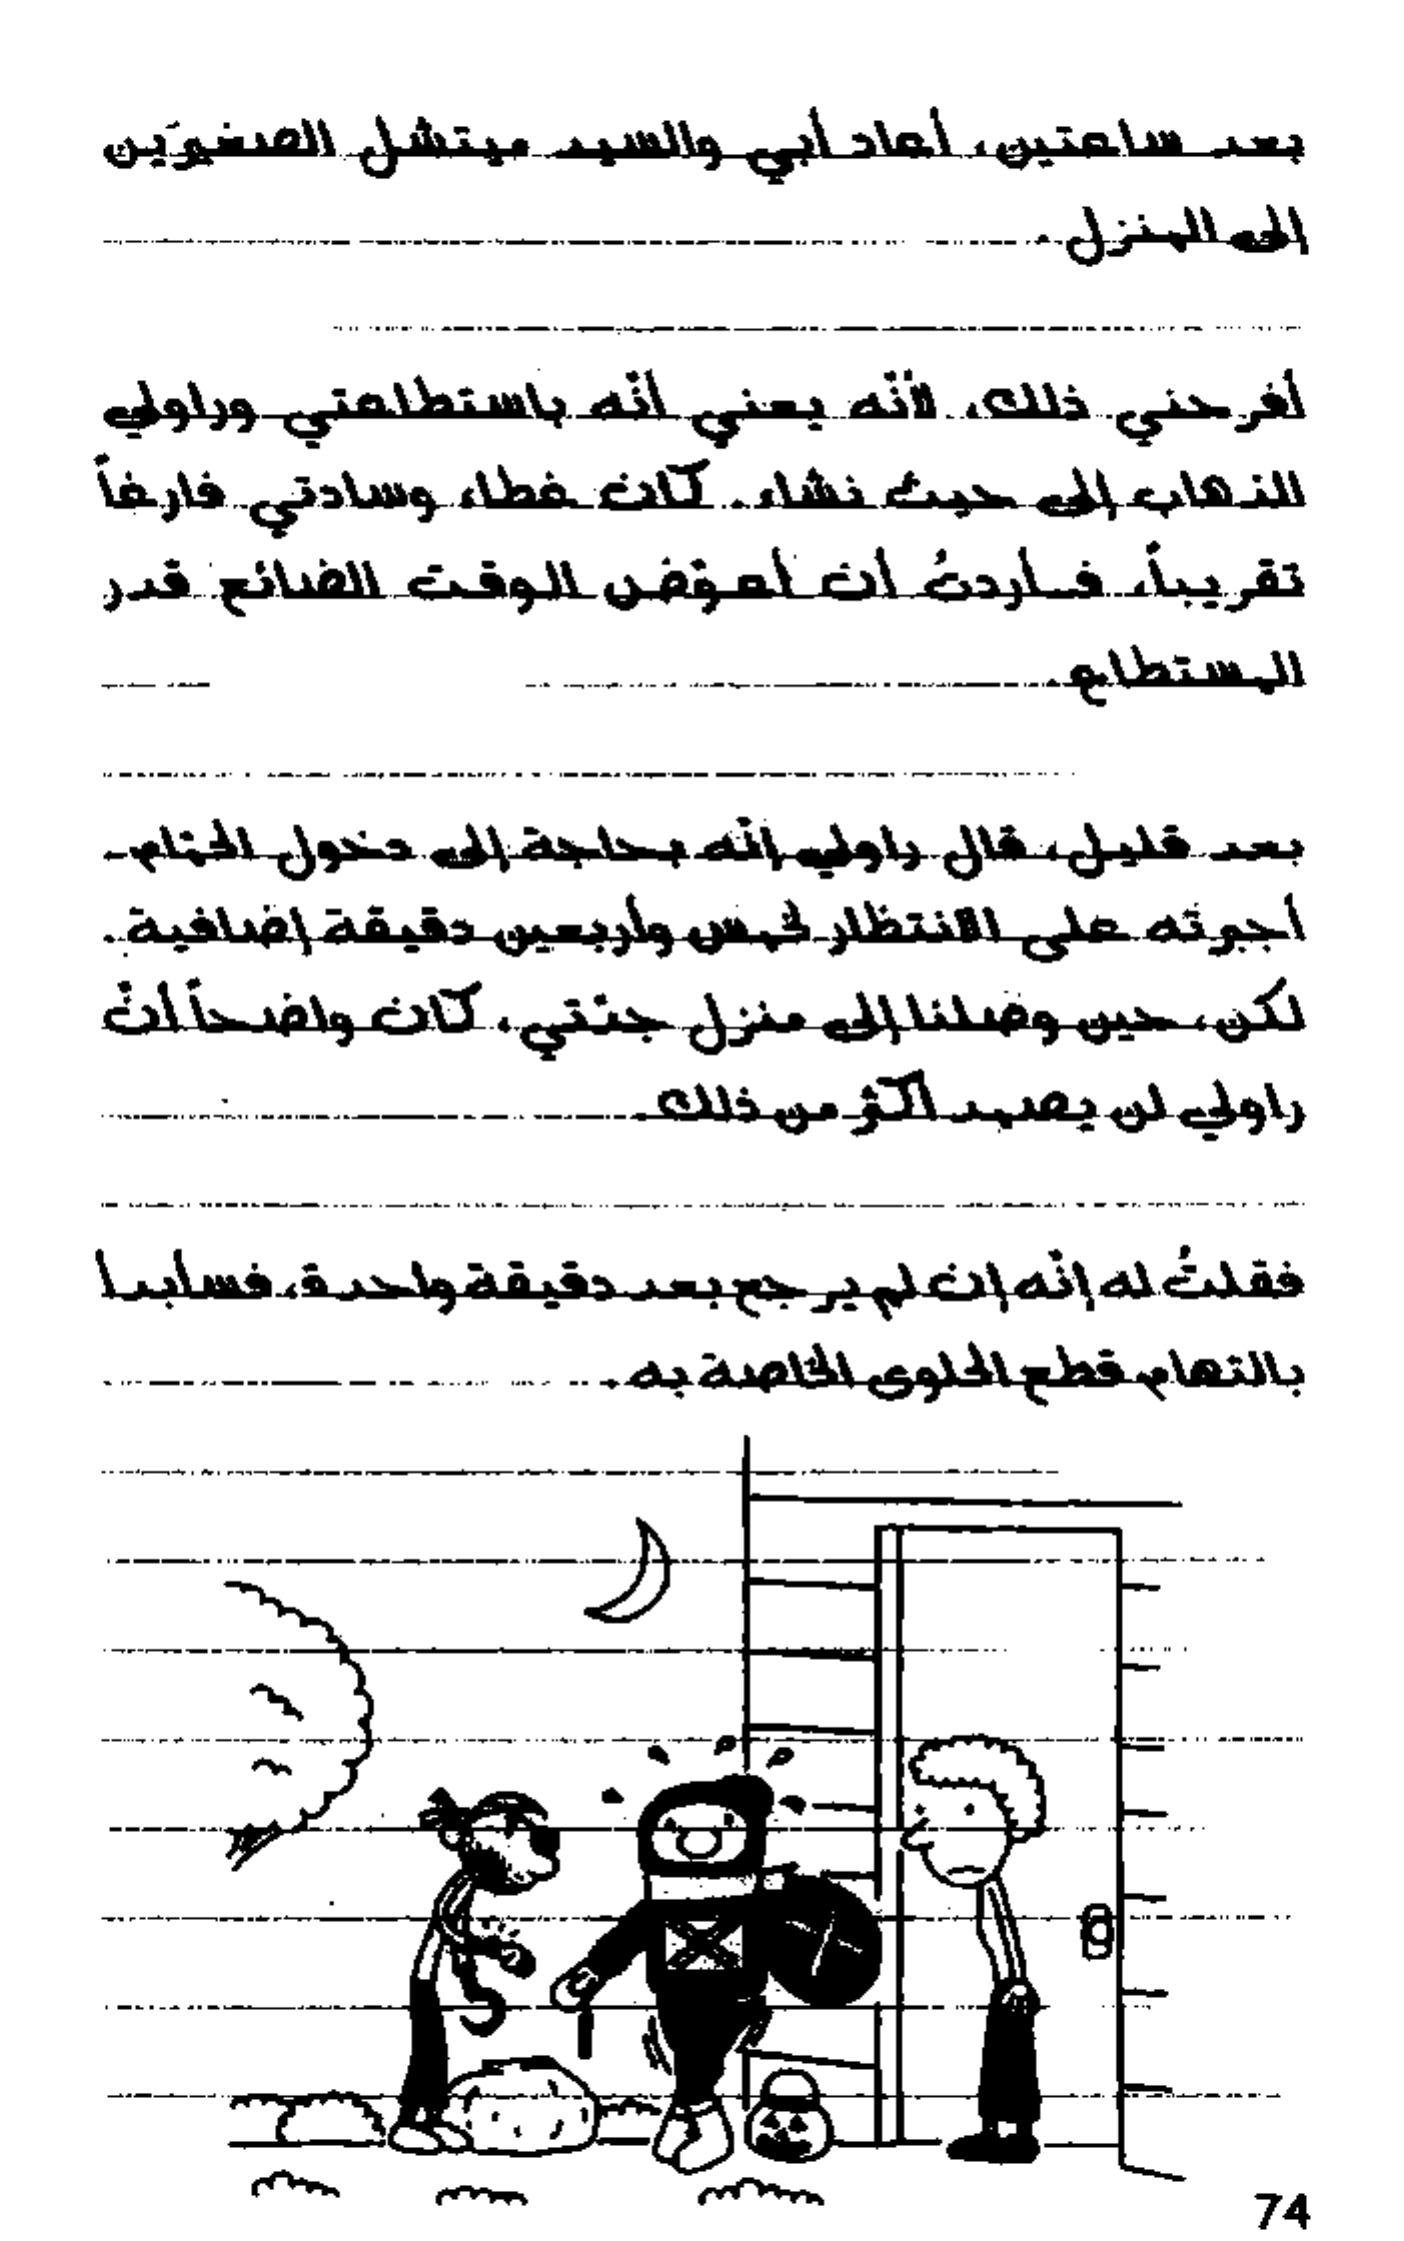 بعد ساعتين، أعاد أبي والسيد ميتشل الصغيرَين
إلى المنزل.
أفرحني ذلك، لأنّه يعني أنّه باستطاعتي وراولي
الذهاب إلى حيث نشاء. كان غطاء وسادتي فارغاً
تقريباً، فأردتُ أن أعوّض الوقت الضائع قدر
المستطاع.
بعد قليل، قال راولي إنّه بحاجة إلى دخول الحمّام.
أجبرتُه على الانتظار لخمس وأربعين دقيقة إضافية.
لكن، حين وصلنا إلى منزل جدّتي، كان واضحاً أنّ
راولي لن يصمد أكثر من ذلك.
فقلتُ له إنّه إن لم يرجع بعد دقيقة واحدة، فسأبدا
بالتهام قطع الحلوى الخاصة به.
74